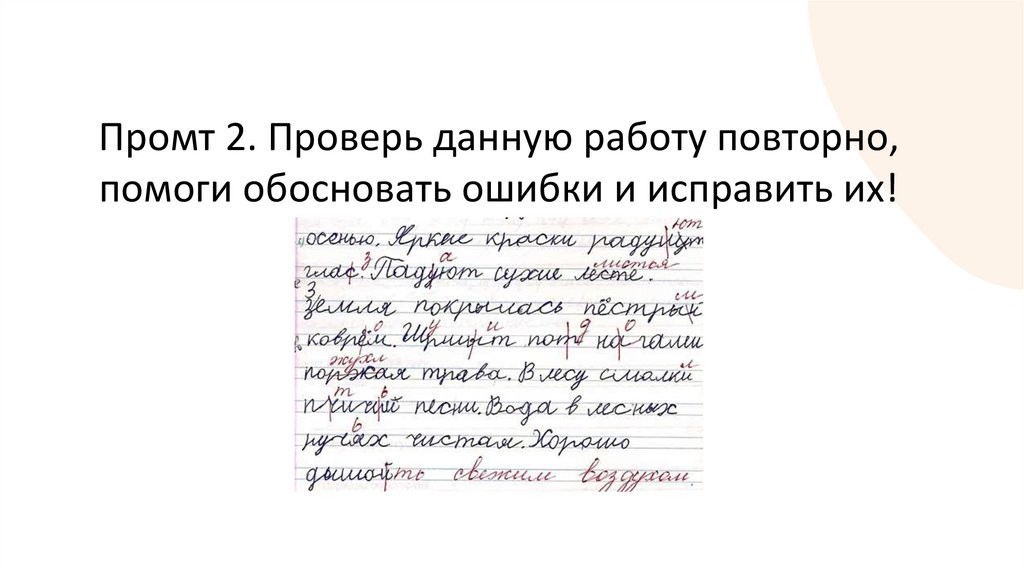 Промт 2. Проверь данную работу повторно,
помоги обосновать ошибки и исправить их!
ют
осенью. Яркие краски радуи
з а листья
глас. Падуют сухие лесте.
З м
земля покрылась пёстрый
о у и д о
коврём. пот нагами
жухл л
трава. В лесу смолкй
т ь
песни. Вода в лесных
ь
ручах чистая. Хорошо
дышать свежим воздухом.